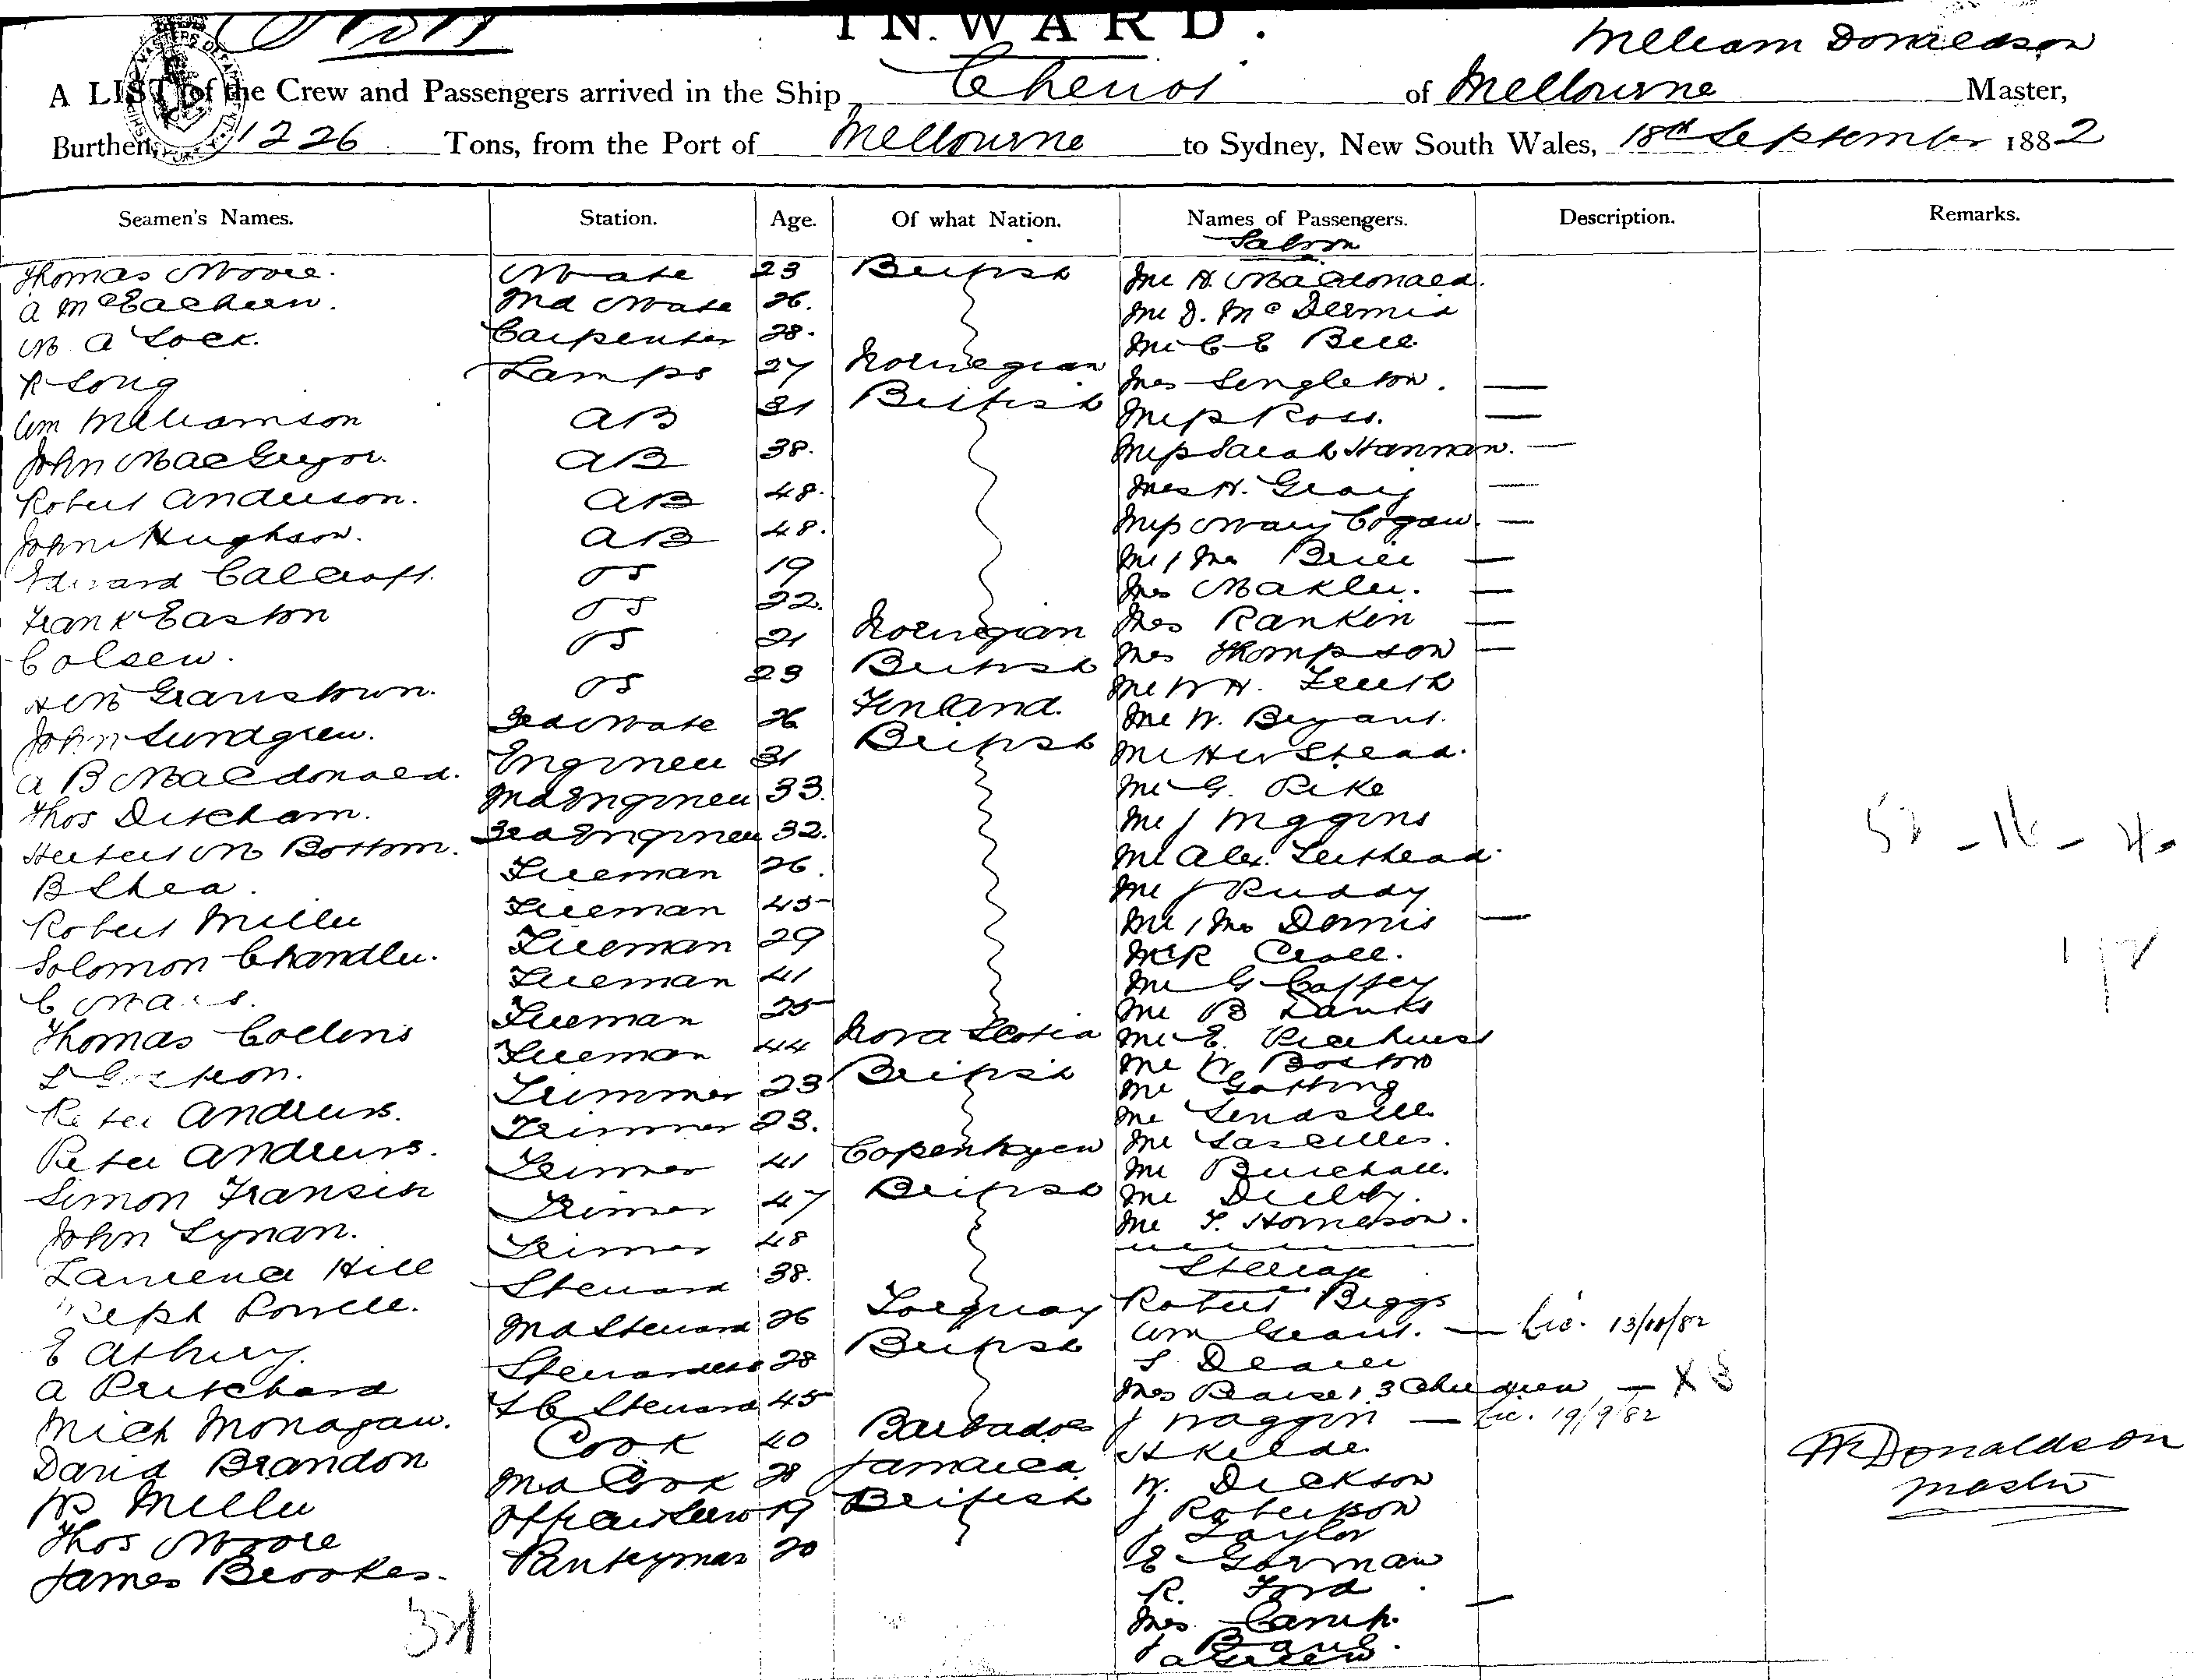 INWARD.
William Donaldson
A LIST of the Crew and Passengers arrived in the Ship Cheviot of Melbourne Master,
Burthen, 1226 Tons, from the Port of Melbourne to Sydney, New South Wales, 18th September 1882
Seamen's Names. Station. Age. Of what Nation. Names of Passengers. Description. Remarks.
Saloon
Thomas Moore. Mate 23 British Mr H. Macdonald.
A McEachern. 2nd Mate 26. Mr D. McDermid
M A Lock. Carpenter 28. Mr C E Bell
R Long Lamps 27 Norwegian Mrs Singleton. —
Wm Williamson AB 31 British Miss Ross. —
John MacGregor. AB 38. Miss Sarah Hannan. —
Robert Anderson. AB 48. Mrs H. Graig —
John Hughson. AB 48. Miss Mary Cogan. —
Edward Calcroft. OS 19 Mr & Mrs Brice —
Frank Easton OS 22. Mrs —
C Olsen. OS 21 Norwegian Mrs Rankin —
OS 23 British Mrs Thompson —
John Lundgren. 3rd Mate 26 Finland. Mr W H.
A B Macdonald. Engineer 31 British Mr W. Bryant.
Thos Ditcham. 2nd Engineer 33. Mr Stead.
Herbert M Bottom. 3rd Engineer 32. Mr G. Pike
B Shea. Fireman 26. Mr J Higgins
Robert Miller Fireman 45 Mr Alex. Leithead
Solomon Chandler. Fireman 29 Mr J Ruddy
C Fireman 41 Mr & Mrs Dennis —
Thomas Collins Fireman 25 Mr R Croll.
L Fireman 44 Nova Scotia Mr G Caffey
Peter Andrews. Trimmer 23 British Mr B Danks
Peter Andrews. Trimmer 23. Mr E.
Simon Fransin Trimmer 41 Copenhagen Mr W Boston
John Lynan. Trimmer 47 British Mr Gotting
Lawrence Hill Trimmer 48 Mr
Joseph Powell. Steward 38. Mr Lascelles.
E Asbury. 2nd Steward 26 Torquay Mr Burchall.
A Pritchard Stewardess 28 British Mr
Mich Monagan. F C Steward 45 Mr T.
David Brandon Cook 40 Barbadoes
W Miller 2nd Cook 28 Jamaica
Thos Moore 19 British
James Brookes. Pantryman 20
Steerage
Robert Biggs
Wm Grant. — Lic. 13/10/82
S
Mrs & 3 Children — X 3
J Waggin — Lic. 19/9/82
H Kilde
W. Dickson
J Robertson
J Taylor
E Gorman
R. Ford
Mrs Camp. —
J
A Green
WR Donaldson
Master